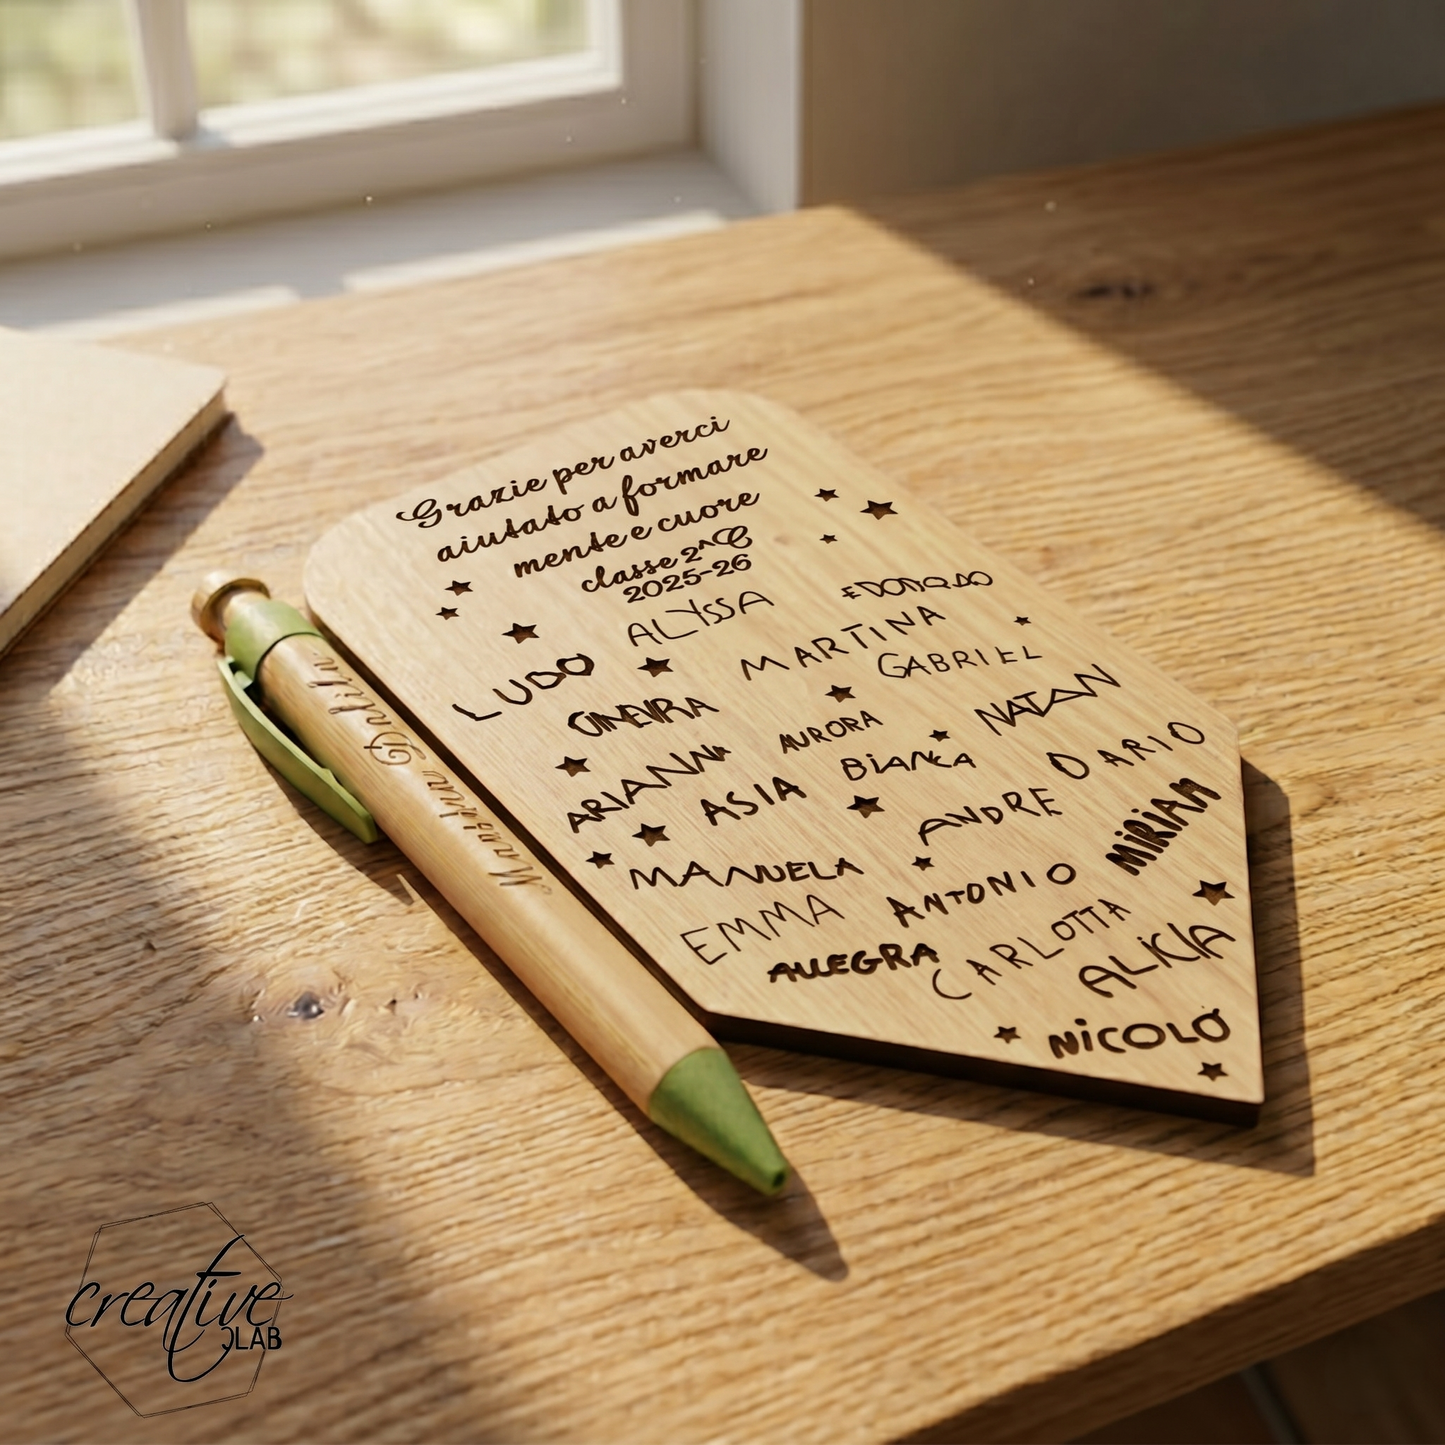 Grazie per averci
aiutato a formare
mente e cuore
classe 2^C
2025-26
ALYSSA
EDOARDO
LUDO
MARTINA
GABRIEL
GINEVRA
AURORA
NATAN
ARIANNA
ASIA
BiANCA
DARIO
ANDRE
MiRiAM
MANUELA
ANTONIO
EMMA
ALLEGRA
CARLOTTA
ALiCIA
NiCOLÒ
creative
LAB